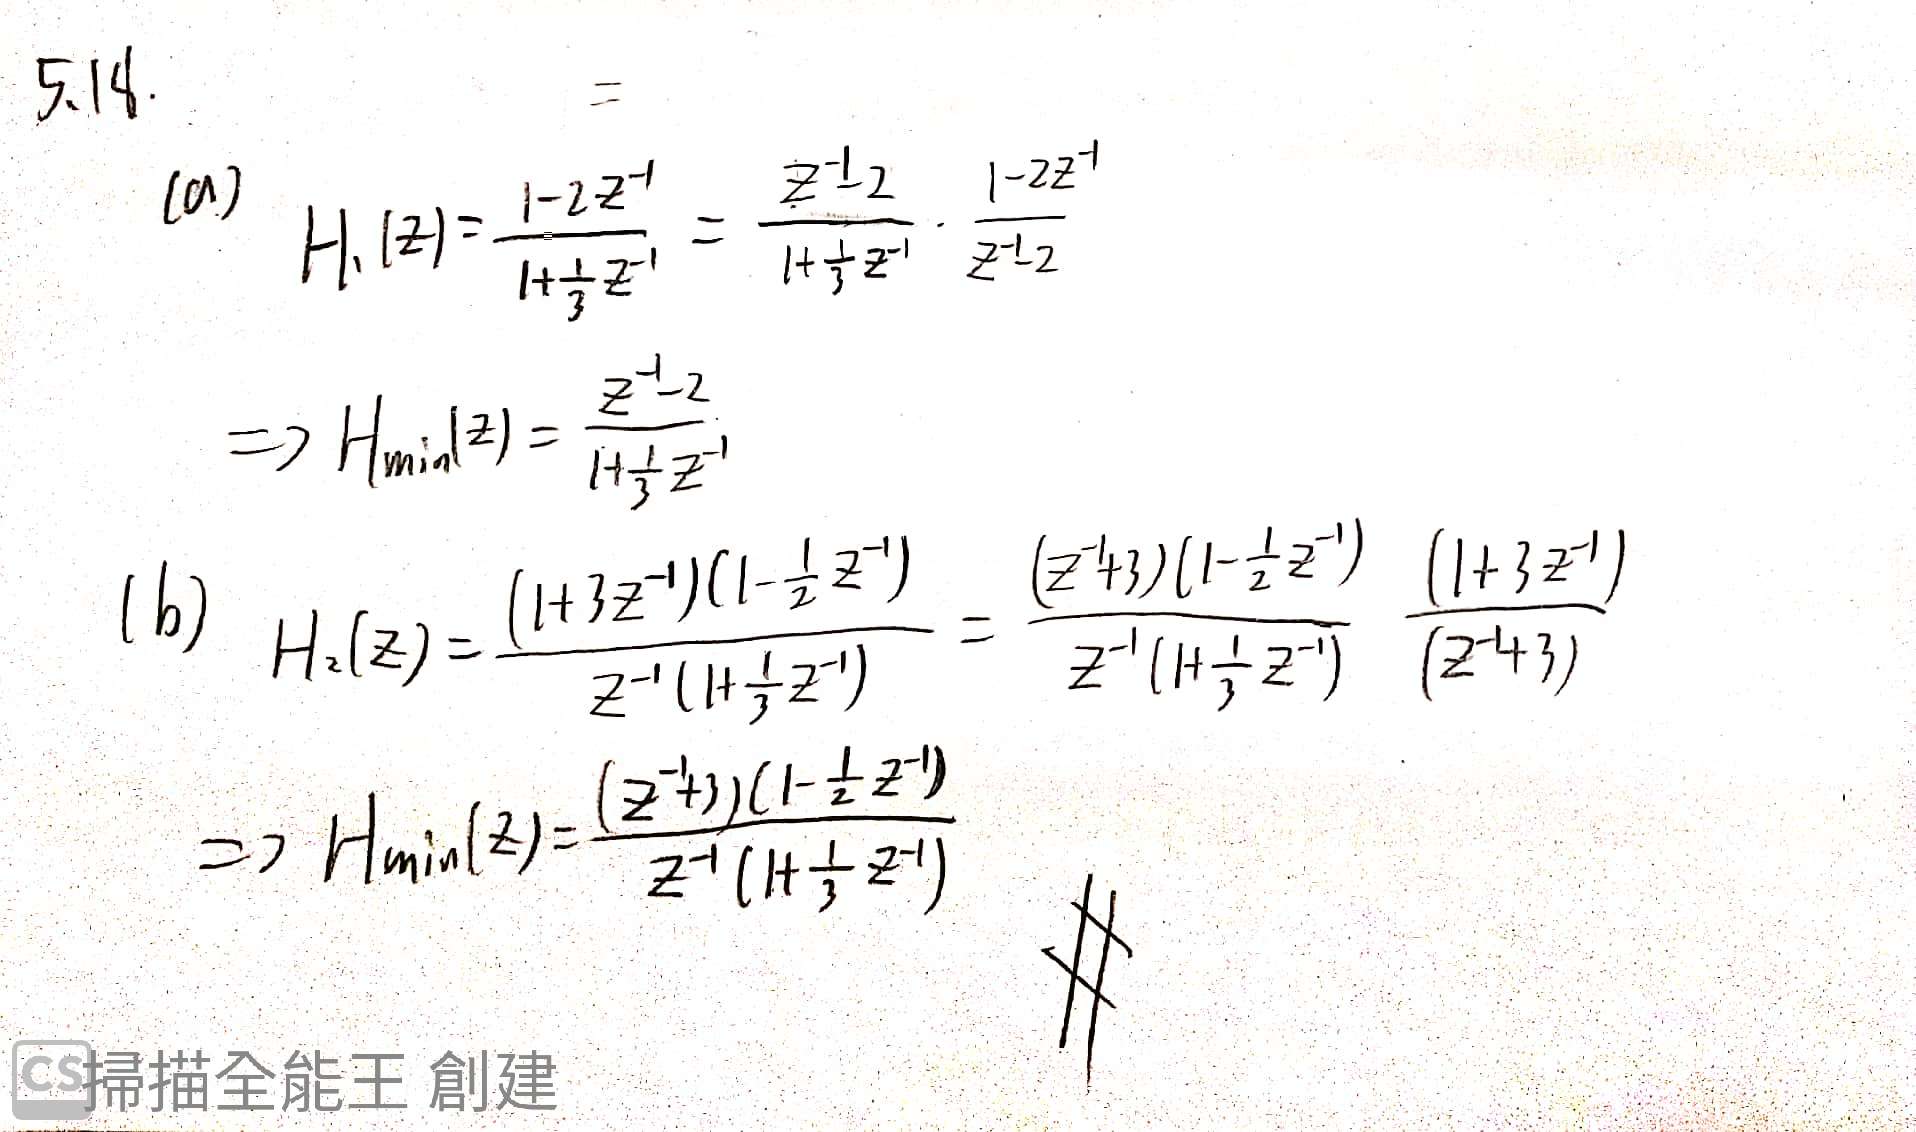 5.18.
=
(a) H₁(z) = (1-2z⁻¹)/(1+⅓z⁻¹) = (z⁻¹-2)/(1+⅓z⁻¹) · (1-2z⁻¹)/(z⁻¹-2)
=> Hmin(z) = (z⁻¹-2)/(1+⅓z⁻¹)
(b) H₂(z) = ((1+3z⁻¹)(1-½z⁻¹))/(z⁻¹(1+⅓z⁻¹)) = ((z⁻¹+3)(1-½z⁻¹))/(z⁻¹(1+⅓z⁻¹)) (1+3z⁻¹)/(z⁻¹+3)
=> Hmin(z) = ((z⁻¹+3)(1-½z⁻¹))/(z⁻¹(1+⅓z⁻¹))
#
CS掃描全能王 創建